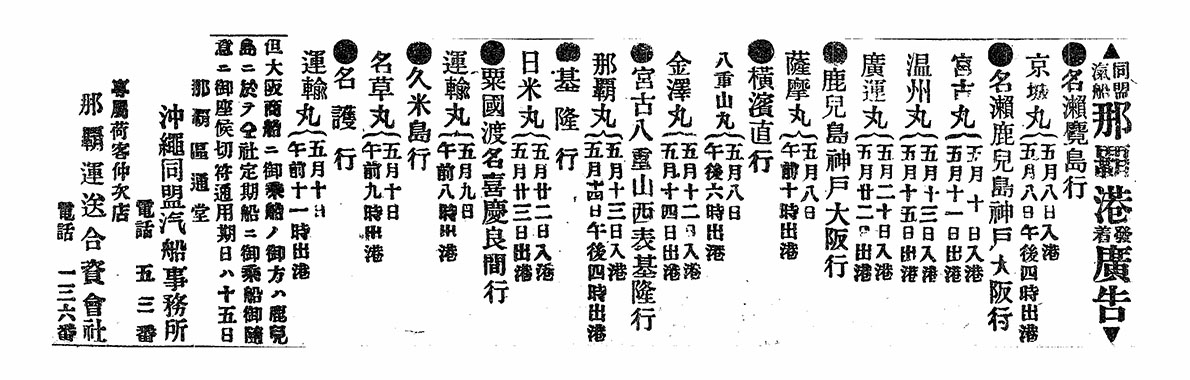 ▲同盟汽船那覇港發着廣告▼
●名瀬鹿島行
京城丸
五月八日入港
五月八日午後四時出港
●名瀬鹿兒島神戸大阪行
宮古丸
五月十日入港
五月十一日出港
温州丸
五月十三日入港
五月十五日出港
廣運丸
五月二十日入港
五月廿二日出港
●鹿兒島神戸大阪行
薩摩丸
五月八日
午前十時出港
●横濱直行
八重山丸
五月八日
午後六時出港
金澤丸
五月十二日入港
五月十四日出港
●宮古八重山西表基隆行
那覇丸
五月十三日入港
五月十四日午後四時出港
●基隆行
日米丸
五月廿二日入港
五月廿三日出港
●粟國渡名喜慶良間行
運輸丸
五月九日
午前八時出港
●久米島行
名草丸
五月十日
午前九時出港
●名護行
運輸丸
五月十日
午前十一時出港
但大阪商船ニ御乘船ノ御方ハ鹿兒
島ニ於テ仝社定期船ニ御乘船御隨
意ニ御座候切符通用期日ハ十五日
那覇區通堂
沖繩同盟汽船事務所
電話 五三番
專屬荷客仲次店
那覇運送合資會社
電話 一三六番